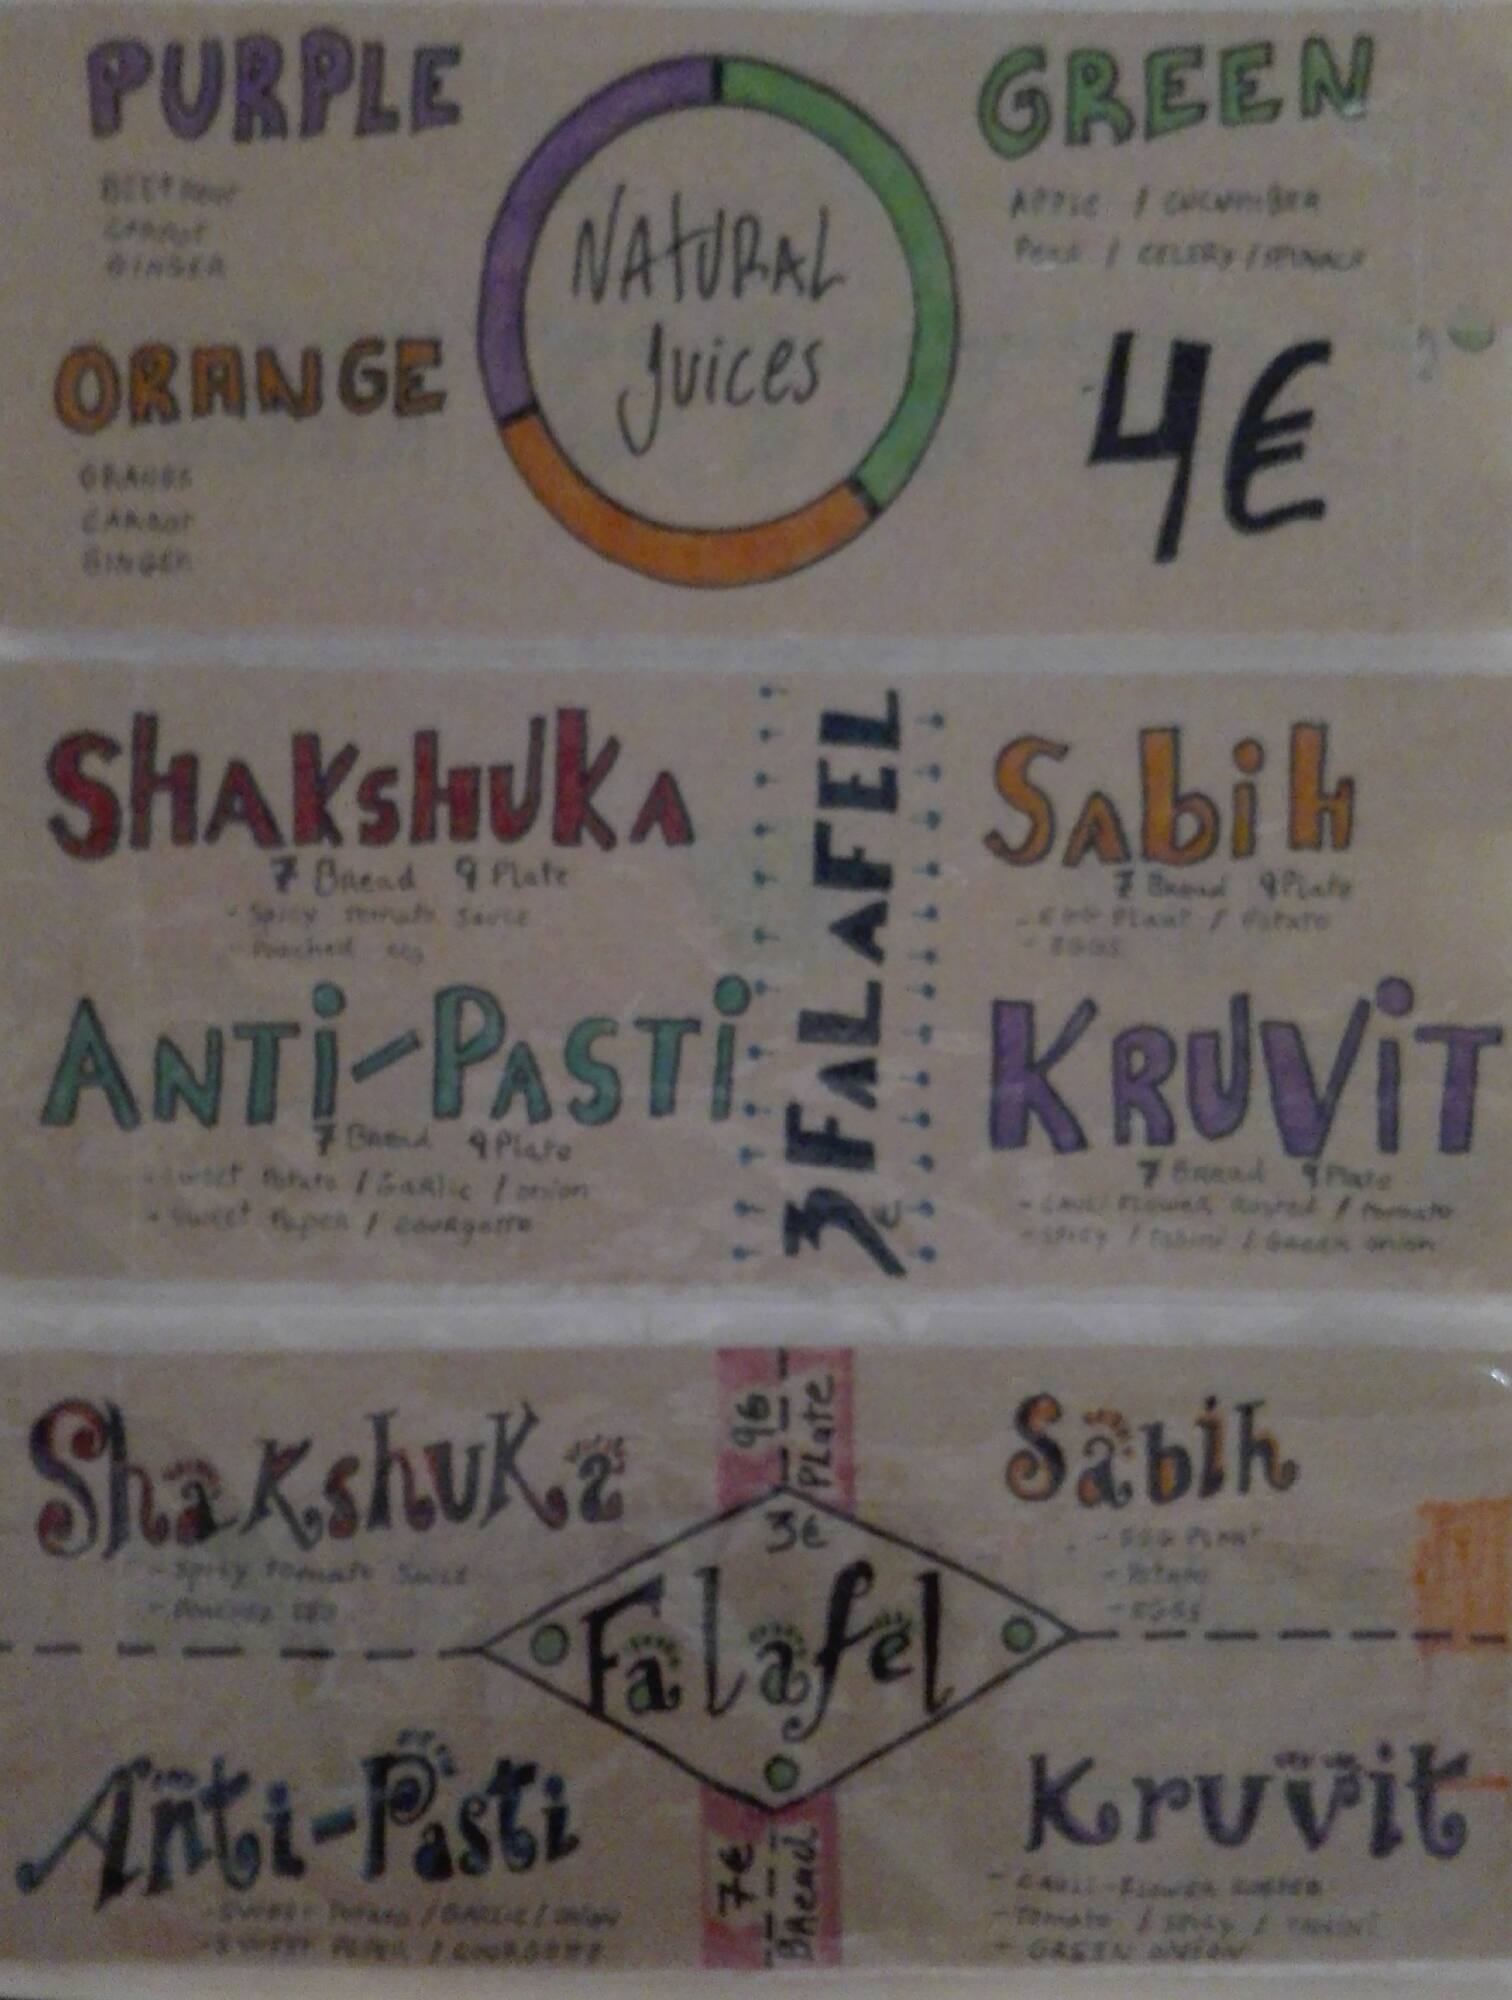 PURPLE
BEETROOT
CARROT
GINGER
GREEN
APPLE / CUCUMBER
PEAR / CELERY / SPINACH
NATURAL
Juices
ORANGE
ORANGE
CARROT
GINGER
4€
SHAKSHUKA
7 Bread 9 Plate
- Spicy tomato Sauce
- Poached egg
ANTi-PASTi
7 Bread 9 Plate
- Sweet Potato / Garlic / onion
- Sweet Paper / courgette
3€ FALAFEL
SAbiH
7 Bread 9 Plate
- EGG Plant / Potato
- EGGS
KRUViT
7 Bread 9 Plate
- CAULiFlower Rosted / tomato
- Spicy / Tahini / Green onion
Shakshuka
- Spicy tomato Sauce
- POACHED EGG
9€ PLate
3€
Falafel
7€ BRead
Sabih
- EGG PLANT
- POTATO
- EGGS
Anti-Pasti
- SWEET POTATO / GARLIC / ONION
- SWEET PAPER / COURGETTE
Kruvit
- CAULi-FLOWER ROSTED
- Tomato / SPICY / TAHINI
- GREEN ONION